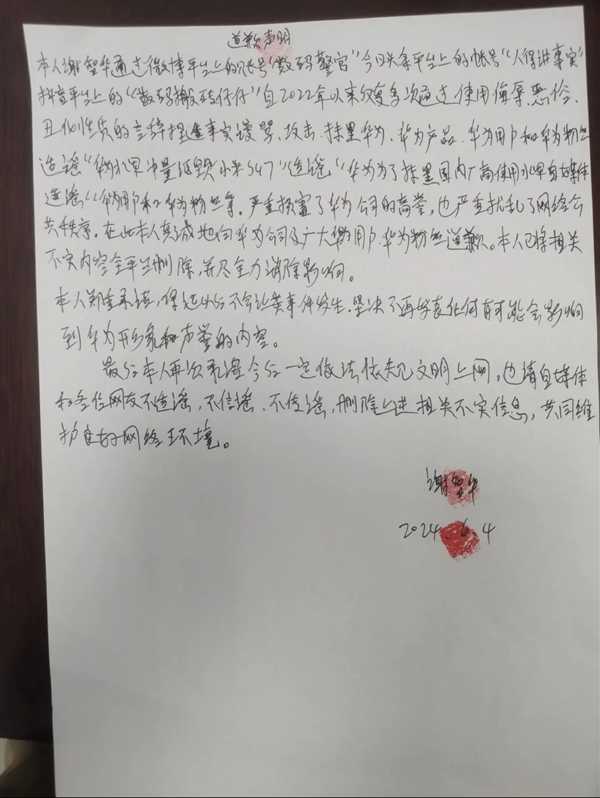 道歉声明
本人谢智华通过微博平台上的账号“数码警官”今日头条平台上的帐号“人得讲事实”
抖音平台上的“数码搬砖仔仔”自2022年以来反复多次通过使用侮辱、恶俗、
丑化性质的言辞捏造事实误导、攻击、抹黑华为、华为产品、华为用户和华为粉丝
造谣“销量低
造谣“华为用户和华为粉丝等。严重损害了华为公司的商誉,也严重扰乱了网络公
共秩序。在此本人真诚地向华为公司及广大华为用户、华为粉丝道歉。本人已将相关
不实内容全平台删除,并尽全力消除影响。
本人郑重承诺,保证以后不会让类事件发生,坚决不再发表任何有可能会影响
到华为形象和声誉的内容。
最后本人再次承诺今后一定依法依规文明上网,也请自媒体
和各位网友不造谣,不信谣、不传谣,删除上述相关不实信息,共同维
护良好网络环境。
谢智华
2024.6.4